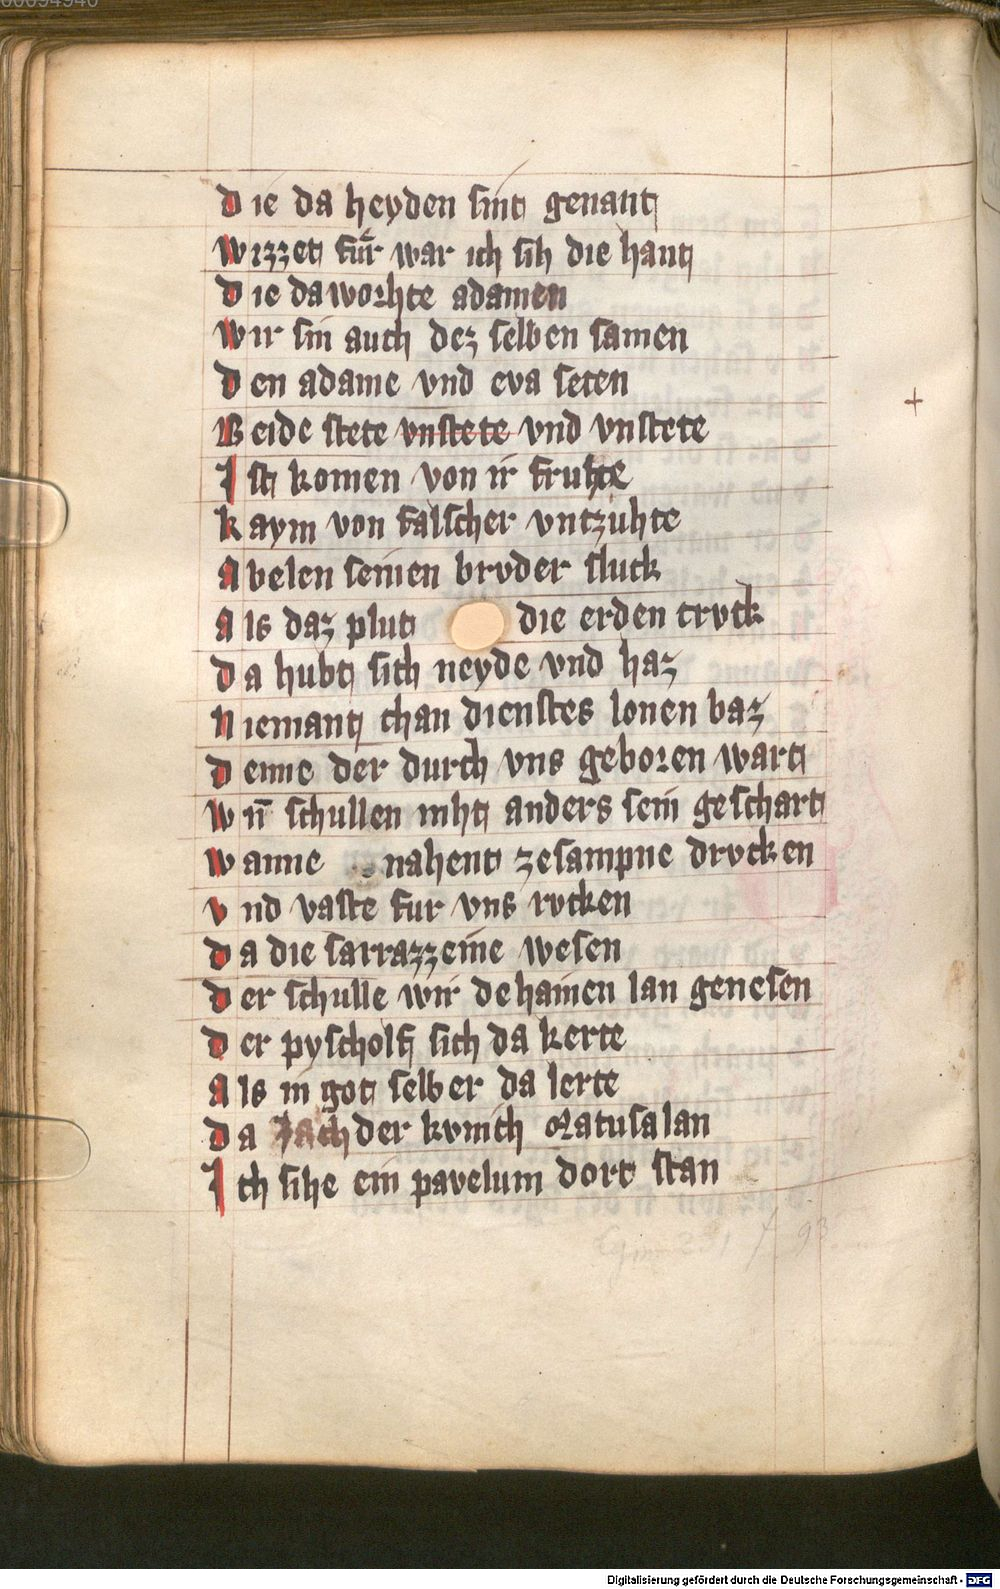 Die da heyden sint genant
Wizzet fuͤr war ich sih die hant
Die da worhte adamen
Wir sin auch dez selben samen
Den adame vnd eva seten
Beide stete vnstete vnd vnstete
Ist komen von ir fruhte
Kaym von falscher vntzuhte
Abelen seinen bruder sluck
Als daz plut die erden truck
Da hubt sich neyde vnd haz
Niemant chan dienstes lonen baz
Denne der durch vns geboren wart
Wn̄ schullen niht anders sein geschart
Wanne nahent zesampne drucken
Vnd vaste fur vns rucken
Da die sarrazzeine wesen
Der schulle wir dehainen lan genesen
Der pyscholf sich da kerte
Als in got selber da lerte
Da Jach der kunich Matusalan
Ich sihe ein pavelum dort stan
+
Cgm 231 f 93
Digitalisierung gefördert durch die Deutsche Forschungsgemeinschaft - DFG